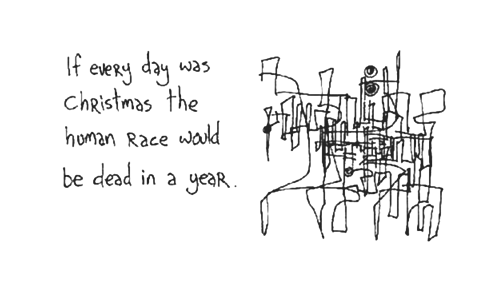 If every day was
Christmas the
human race would
be dead in a year.